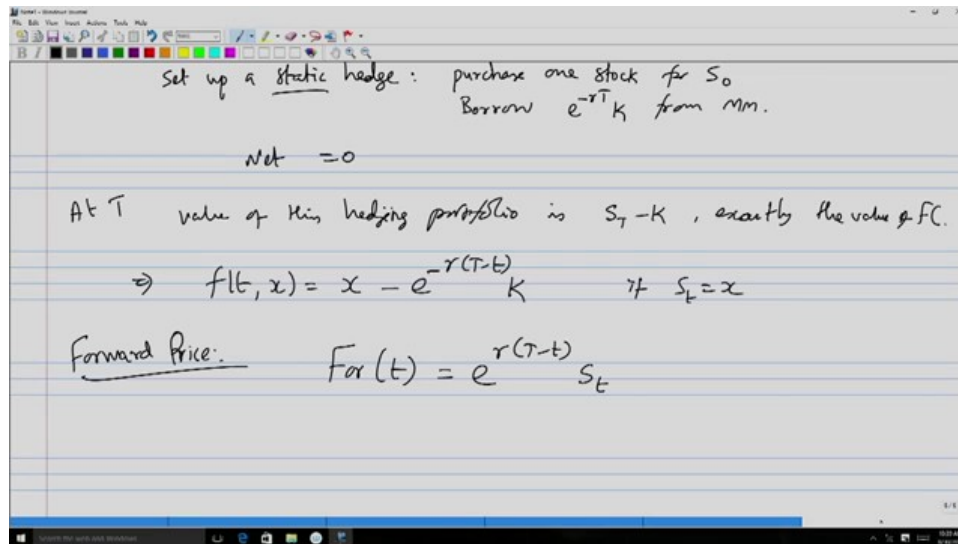 Note1 - Windows Journal
File Edit View Insert Actions Tools Help
B I
Set up a static hedge : purchase one stock for S₀
Borrow e^{-rT} K from MM.
Net = 0
At T value of this hedging portfolio is S_T - K , exactly the value of FC.
⇒ f(t, x) = x - e^{-r(T-t)} K if S_t = x
Forward Price:. For (t) = e^{r(T-t)} S_t
6/6
Search the web and Windows